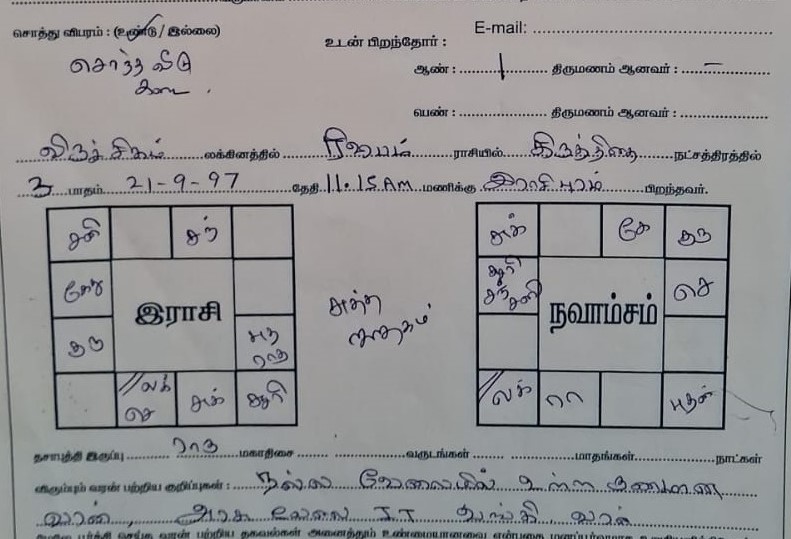 சொத்து விபரம் : (உண்டு / இல்லை)
உடன் பிறந்தோர் :
E-mail:
சொந்த வீடு
கடை .
ஆண் : 1 திருமணம் ஆனவர் : –
பெண் : திருமணம் ஆனவர் :
விருச்சிகம் லக்கினத்தில் ரிஷபம் ராசியில் கிருத்திகை நட்சத்திரத்தில்
3 பாதம் 21-9-97 தேதி 11.15 AM மணிக்கு இராசிபுரம் பிறந்தவர்.
சனி சந்
கேது
இராசி
குரு
புத ராகு
லக் செ சுக் சூரி
சுத்த ஜாதகம்
சுக் கே குரு
சூரி சந் சனி
செ
நவாம்சம்
லக் ரா புதன்
தசாபுத்தி இருப்பு ராகு மகாதிசை வருடங்கள் மாதங்கள் நாட்கள்
விரும்பும் வரன் பற்றிய குறிப்புகள் : நல்ல வேலையில் உள்ள குணமான
வரன், அரசு வேலை IT வங்கி வரன்
பற்றிய தகவல்கள் அனைத்தும் உண்மையானவை என்பதை